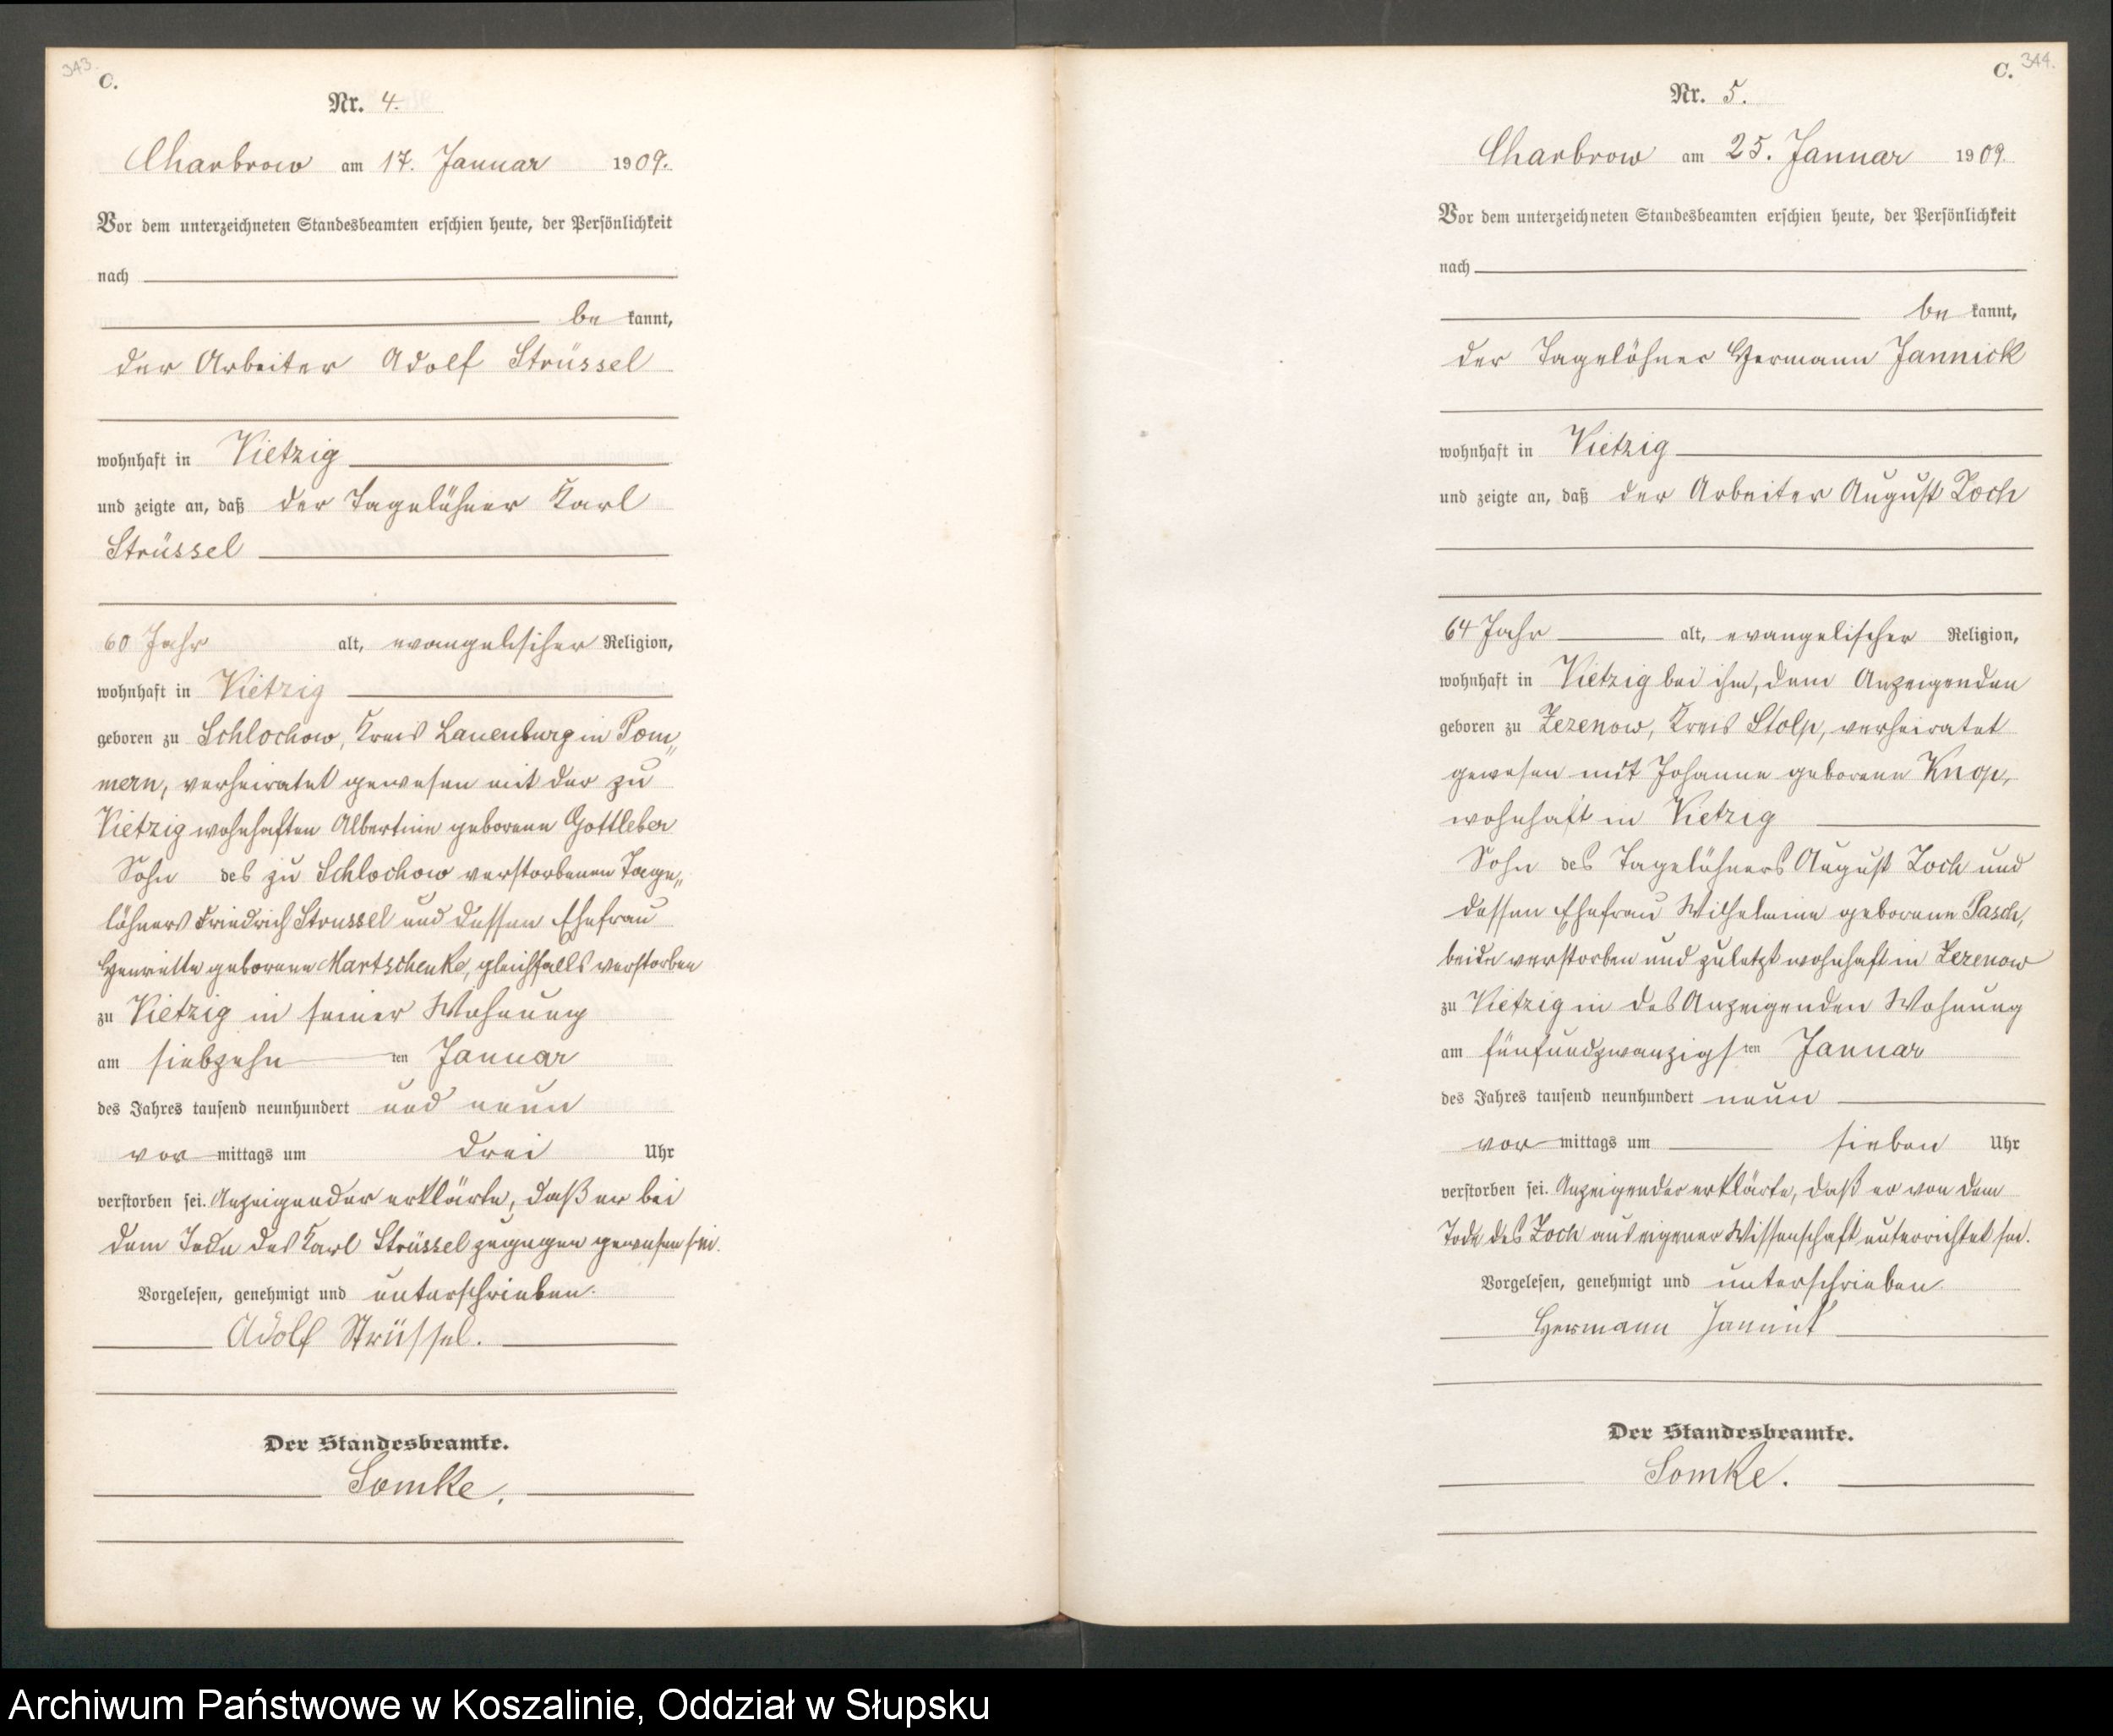 343.
C.
Nr. 4.
Charbrow am 17. Januar 1909.
Vor dem unterzeichneten Standesbeamten erschien heute, der Persönlichkeit
nach
be kannt,
der Arbeiter Adolf Strüssel
wohnhaft in Vietzig
und zeigte an, daß der Tagelöhner Karl
Strüssel
60 Jahr alt, evangelischer Religion,
wohnhaft in Vietzig
geboren zu Schlochow, Kreis Lauenburg in Pom„
mern, verheiratet gewesen mit der zu
Vietzig wohnhaften Albertine geborene Gottleber
Sohn des zu Schlochow verstorbenen Tage„
löhners Friedrich Strussel und dessen Ehefrau
Henriette geborene Martschenke, gleichfalls verstorben
zu Vietzig in seiner Wohnung
am siebzehn ten Januar
des Jahres tausend neunhundert und neun
vor mittags um drei Uhr
verstorben sei. Anzeigender erklärte, daß er bei
dem Tode des Karl Strüssel zugegen gewesen sei.
Vorgelesen, genehmigt und unterschrieben.
Adolf Strüssel.
Der Standesbeamte.
Somke.
C. 344.
Nr. 5.
Charbrow am 25. Januar 1909.
Vor dem unterzeichneten Standesbeamten erschien heute, der Persönlichkeit
nach
be kannt,
der Tagelöhner Hermann Jannick
wohnhaft in Vietzig
und zeigte an, daß der Arbeiter August Zoch
64 Jahr alt, evangelischer Religion,
wohnhaft in Vietzig bei ihm, dem Anzeigenden
geboren zu Zezenow, Kreis Stolp, verheiratet
gewesen mit Johanne geborene Knop,
wohnhaft in Vietzig
Sohn des Tagelöhners August Zoch und
dessen Ehefrau Wilhelmine geborene Pasch,
beide verstorben und zuletzt wohnhaft in Zezenow
zu Vietzig in des Anzeigenden Wohnung
am fünfundzwanzigs ten Januar
des Jahres tausend neunhundert neun
vor mittags um sieben Uhr
verstorben sei. Anzeigender erklärte, daß er von dem
Tode des Zoch aus eigener Wissenschaft unterrichtet sei.
Vorgelesen, genehmigt und unterschrieben.
Hermann Jannik
Der Standesbeamte.
Somke.
Archiwum Państwowe w Koszalinie, Oddział w Słupsku